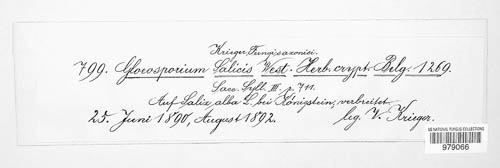 Krieger, Fungi saxonici.
799. Gloeosporium Salicis West. Herb. crypt. Belg. 1269.
Sacc. Syll. III. p. 711.
Auf Salix alba L. bei Königstein, verbreitet.
25. Juni 1890, August 1892. leg. W. Krieger.
US NATIONAL FUNGUS COLLECTIONS
979066